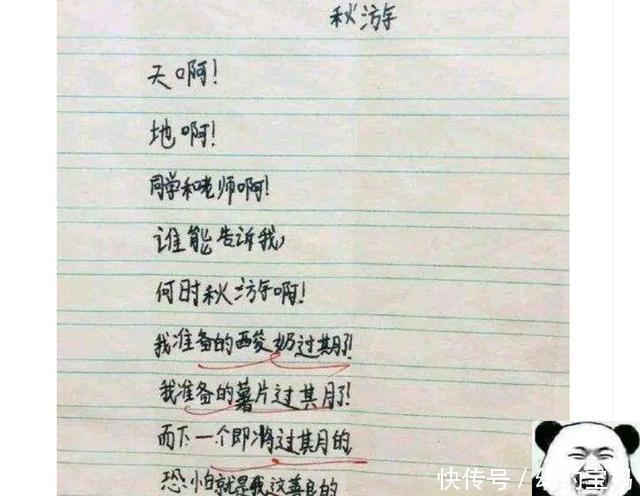 秋游
天啊!
地啊!
同学和老师啊!
谁能告诉我,
何时秋游啊!
我准备的酸奶过期了!
我准备的薯片过期了!
而下一个即将过期的
恐怕就是我这善良的
快传号/幼的宝妈